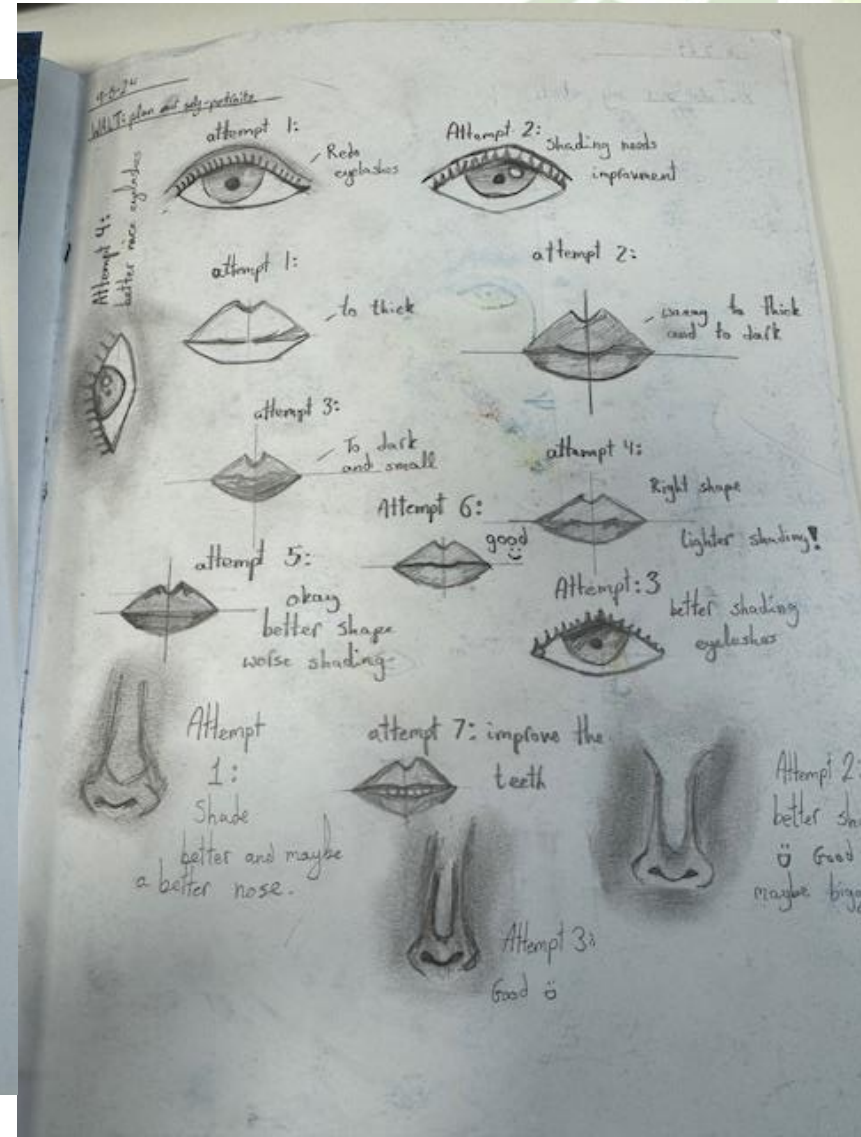 9-8-24
WALT: plan our self-portraits
attempt 1:
Redo
eyelashes
Attempt 2:
Shading needs
improvment
Attempt 4:
better nice eyelashes
attempt 1:
to thick
attempt 2:
waaay to thick
and to dark
attempt 3:
To dark
and small
attampt 4:
Right shape
lighter shading!
Attempt 6:
good
attempt 5:
okay
better shape
worse shading
Attempt:3
better shading
eyelashes
Attempt
1:
Shade
better and maybe
a better nose.
attempt 7: improve the
teeth
Attempt 2:
better
Good
maybe
Attempt 3:
Good